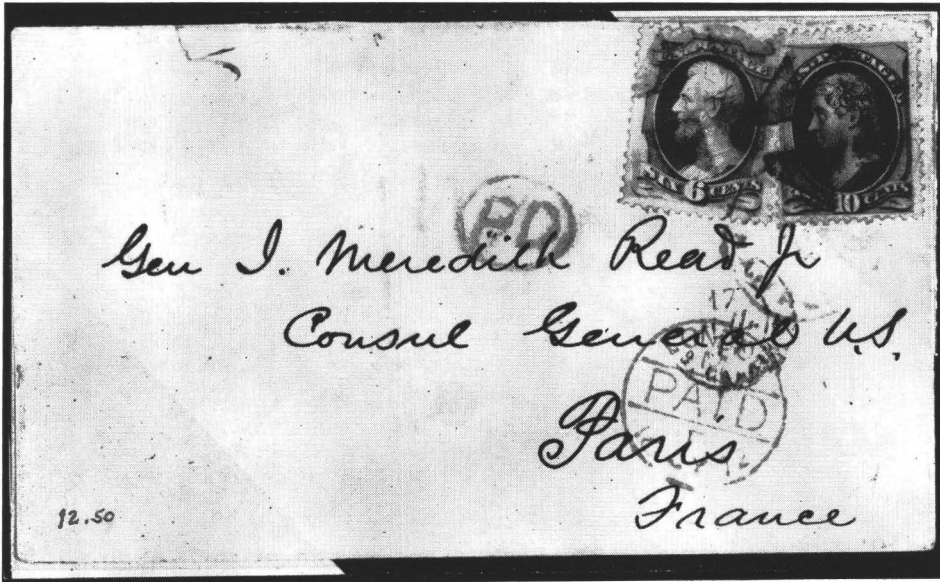 SIX 6 CENTS
10 CENTS
PD
Gen I. Meredith Read Jr
17
Consul General U.S.
PAID
Paris
France
12.50